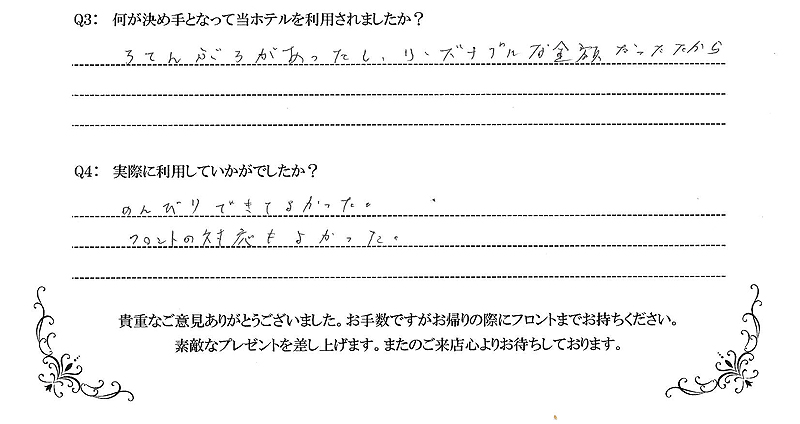 Q3： 何が決め手となって当ホテルを利用されましたか？
ろてんぶろがあったし、リーズナブルな金額だったから
Q4： 実際に利用していかがでしたか？
のんびりできてよかった。
フロントの対応もよかった。
貴重なご意見ありがとうございました。お手数ですがお帰りの際にフロントまでお持ちください。
素敵なプレゼントを差し上げます。またのご来店心よりお待ちしております。